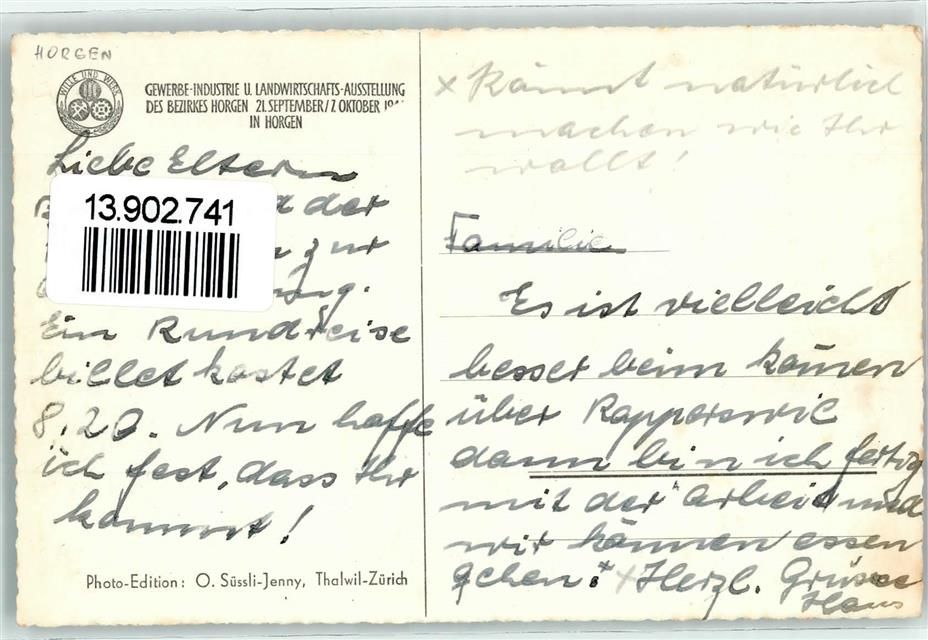 HORGEN
WILLE UND WERK
GEWERBE-INDUSTRIE U. LANDWIRTSCHAFTS-AUSSTELLUNG
DES BEZIRKES HORGEN 21. SEPTEMBER/7. OKTOBER 19
IN HORGEN
Liebe Eltern
der
zur
Ein Rundreise
billet kostet
8.20. Nun hoffe
ich fest, dass Ihr
kommt!
13.902.741
Photo-Edition: O. Süssli-Jenny, Thalwil-Zürich
x Könnt natürlich
machen wie Ihr
wollt!
Familie
Es ist vielleicht
besser beim kommen
über Rapperswil
dann bin ich fertig
mit der Arbeit und
wir können essen
gehen! x Herzl. Grüsse
Hans